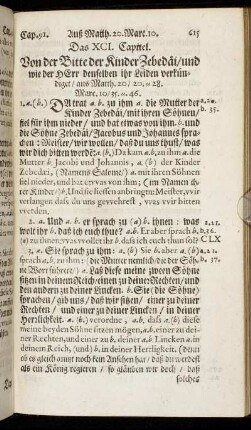 Cap.91. Auß Matth. 20. Marc. 10. 615
Das XCI. Capitel.
Von der Bitte der Kinder Zebedäi/und
wie der HErr denselben ihr Leiden verkün-
diget/ aus Matth. 20/20. = 28.
Marc. 10/35. = 46.
1. a.(b.) DA trat a. b. zu ihm a. die Mutter der
Kinder Zebedäi/mit ihren Söhnen/
fiel für ihm nieder/ und bat etwas von ihm. b. und
die Söhne Zebedäi/Jacobus und Johannes spra-
chen: Meister/wir wollen/ daß du uns thust/ was
wir dich bitten werden. a. (b.) Da kam a. b. zu ihm a. die
Mutter b. Jacobi und Johannis, a. (b) der Kinder
Zebedäi, (Namens Salome/) a. mit ihren Söhnen
fiel nieder, und bat etwas von ihm; (im Namen
der Kinder/ b. und die Söhne selbst
verlangen daß du uns gevvehrest, vvas vvir bitten
vverden.
2. a. Und a. b. er sprach zu (a) b. ihnen: was
wolt ihr b. daß ich euch thue? a.b. Er aber sprach b.
(a) zu ihnen, vvas vvollet ihr b. daß ich euch thun sol? CLX
3. a. Sie sprach zu ihm: a. (b) Sie b. aber a. (b.)
sprach a. b. zu ihm: die Mutter
a. Laß diese meine zween Söhne
sitzen in deinem Reich/einen zu deiner Rechten/ und
den andern zu deiner Lincken. b. Sie (die Söhne)
sprachen/ gib uns / daß wir sitzen/ einer zu deiner
Rechten / und einer zu deiner Lincken / in deiner
Herrlichkeit. a. (b.) verordne, a. b. daß a. (b) diese
meine beyden Söhne sitzen mögen, a.b. einer zu dei-
ner Rechten, und einer zu b. deiner a.b. Lincken a. in
deinem Reich, (und) b. in deiner Herrligkeit. (denn
ob es gleich anitzt noch kein Ansehen hat/ daß du werdest
als ein König regieren / so gläuben wir doch / daß
solches